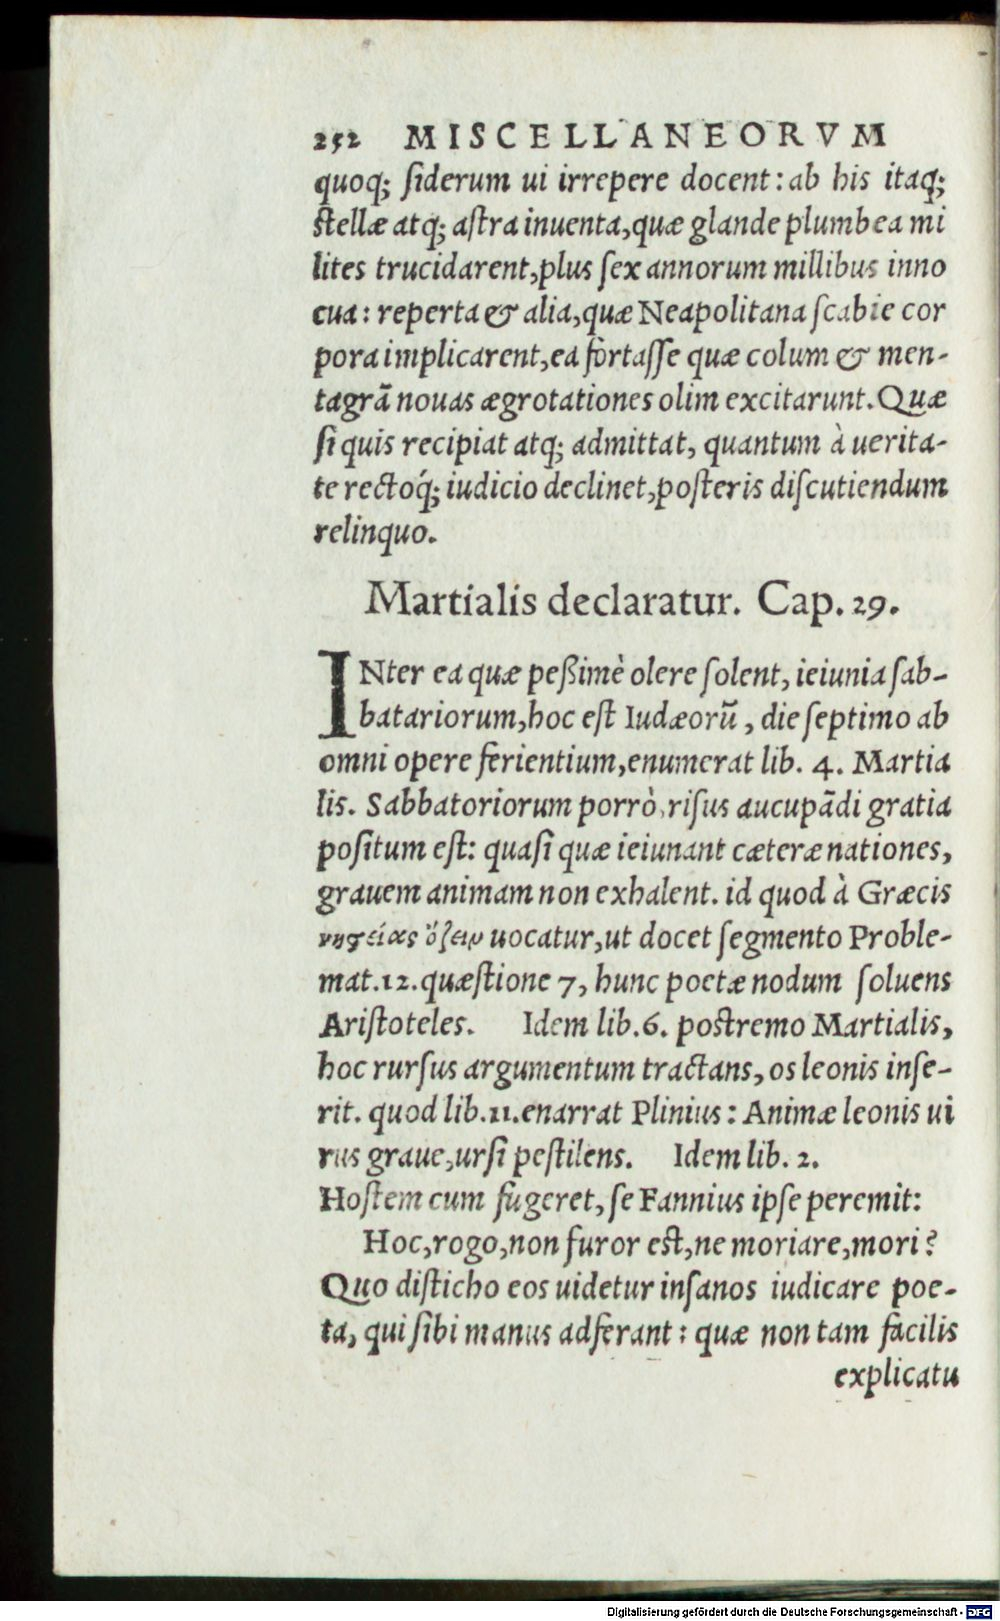 252 MISCELLANEORVM
quoq; siderum ui irrepere docent: ab his itaq;
stellæ atq; astra inuenta, quæ glande plumbea mi
lites trucidarent, plus sex annorum millibus inno
cua: reperta & alia, quæ Neapolitana scabie cor
pora implicarent, ea fortasse quæ colum & men-
tagrã nouas ægrotationes olim excitarunt. Quæ
si quis recipiat atq; admittat, quantum à uerita-
te rectoq́; iudicio declinet, posteris discutiendum
relinquo.
Martialis declaratur. Cap. 29.
INter ea quæ peßimè olere solent, ieiunia sab-
batariorum, hoc est Iudæorũ, die septimo ab
omni opere ferientium, enumerat lib. 4. Martia
lis. Sabbatoriorum porrò, risus aucupãdi gratia
positum est: quasi quæ ieiunant cæteræ nationes,
grauem animam non exhalent. id quod à Græcis
νηστείας ὄζειν uocatur, ut docet segmento Proble-
mat. 12. quæstione 7, hunc poetæ nodum soluens
Aristoteles. Idem lib. 6. postremo Martialis,
hoc rursus argumentum tractans, os leonis inse-
rit. quod lib. 11. enarrat Plinius: Animæ leonis ui
rus graue, ursi pestilens. Idem lib. 2.
Hostem cum fugeret, se Fannius ipse peremit:
Hoc, rogo, non furor est, ne moriare, mori?
Quo disticho eos uidetur insanos iudicare poe-
ta, qui sibi manus adferant: quæ non tam facilis
explicatu
Digitalisierung gefördert durch die Deutsche Forschungsgemeinschaft - DFG